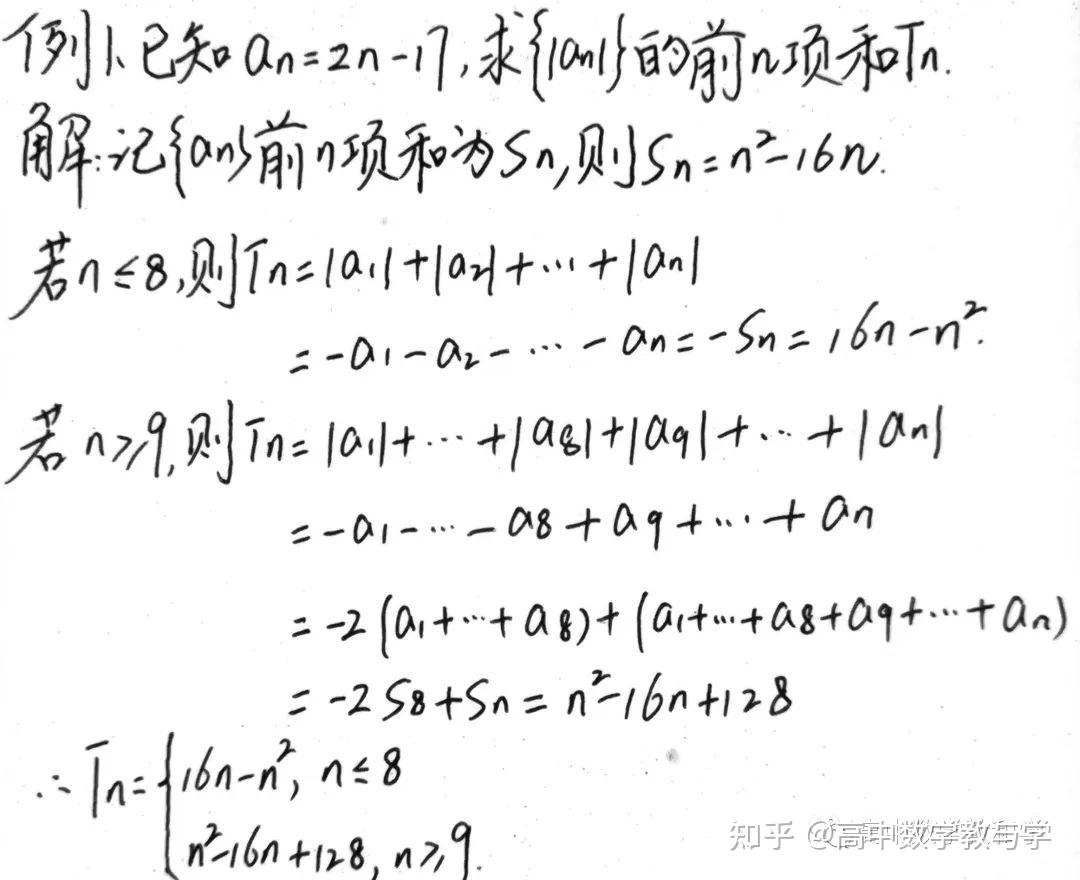 例1、已知an=2n-17,求{|an|}的前n项和Tn.
解:记{an}前n项和为Sn,则Sn=n²-16n.
若n≤8,则Tn=|a1|+|a2|+…+|an|
=-a1-a2-…-an=-Sn=16n-n².
若n≥9,则Tn=|a1|+…+|a8|+|a9|+…+|an|
=-a1-…-a8+a9+…+an
=-2(a1+…+a8)+(a1+…+a8+a9+…+an)
=-2S8+Sn=n²-16n+128
∴Tn={16n-n², n≤8
n²-16n+128, n≥9.
知乎 @高中数学教与学